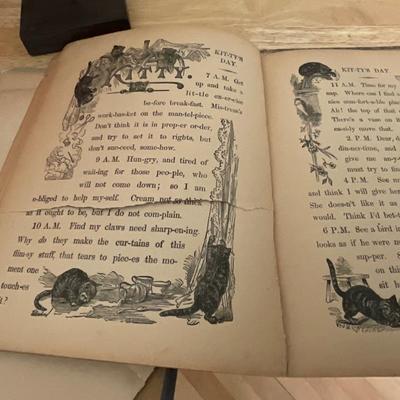 KITTY.
KIT-TY'S
DAY.
7 A.M. Get
up and take a
lit-tle ex-er-cise
be-fore break-fast. Mis-tress's
work-bas-ket on the man-tel-piece.
Don't think it is in prop-er or-der,
and try to set it to rights, but
don't suc-ceed, some-how.
9 A.M. Hun-gry, and tired of
wait-ing for those peo-ple, who
will not come down; so I am
o-bliged to help my-self. Cream not so thick
as it ought to be, but I do not com-plain.
10 A.M. Find my claws need sharp-en-ing.
Why do they make the cur-tains of this
flim-sy stuff, that tears to piec-es the mo-
ment one
touch-es
it?
KIT-TY'S DAY
11 A.M. Time for my
nap. Where can I find a
nice com-fort-a-ble place
Ah! the top of that
There's a vase on it
eas-i-ly move that.
2 P.M. Dear, d
din-ner-time, and
give me an-y
must try to find
4 P.M. See n
and think I will give her
She does-n't like it as
would. Think I'd bet-t
6 P.M. See a bird in
looks as if he were no
sup-per. S
on thin
sit h